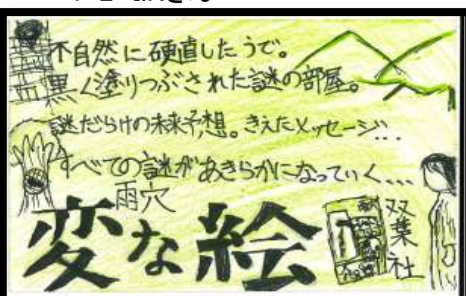 不自然に硬直したうで。
黒く塗りつぶされた謎の部屋。
謎だらけの未来予想。きえたメッセージ...
すべての謎があきらかになっていく....
雨穴
変な絵
双葉社